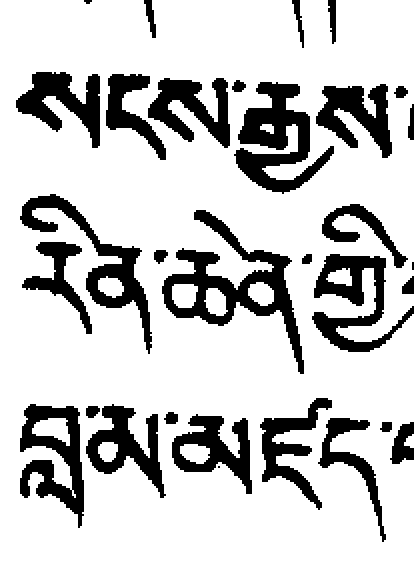 སངས་རྒྱས་
རིན་ཆེན་གྱི
བླ་མ་མཛད་